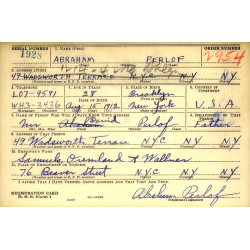 SERIAL NUMBER 1. NAME (Print) ORDER NUMBER
1928 ABRAHAM PERLOF 2954
2. ADDRESS (Print)
49 WADSWORTH TERRACE N.Y.C N.Y. N.Y.
3. TELEPHONE 4. AGE IN YEARS 5. PLACE OF BIRTH 6. COUNTRY OF
LO7-9591 28 Brooklyn
DATE OF BIRTH CITIZENSHIP
WH3-3936 Aug 15, 1912 New York U.S.A
7. NAME OF PERSON WHO WILL ALWAYS KNOW YOUR ADDRESS 8. RELATIONSHIP OF THAT PERSON
Mr Perlof Father
9. ADDRESS OF THAT PERSON
49 Wadsworth Terrace N.Y.C N.Y. N.Y.
10. EMPLOYER'S NAME
Samuels, & Wallner
11. PLACE OF EMPLOYMENT OR BUSINESS
76 Beaver Street N.Y.C N.Y.
I AFFIRM THAT I HAVE VERIFIED ABOVE ANSWERS AND THAT THEY ARE TRUE.
REGISTRATION CARD
D. S. S. Form 1 Abraham Perlof